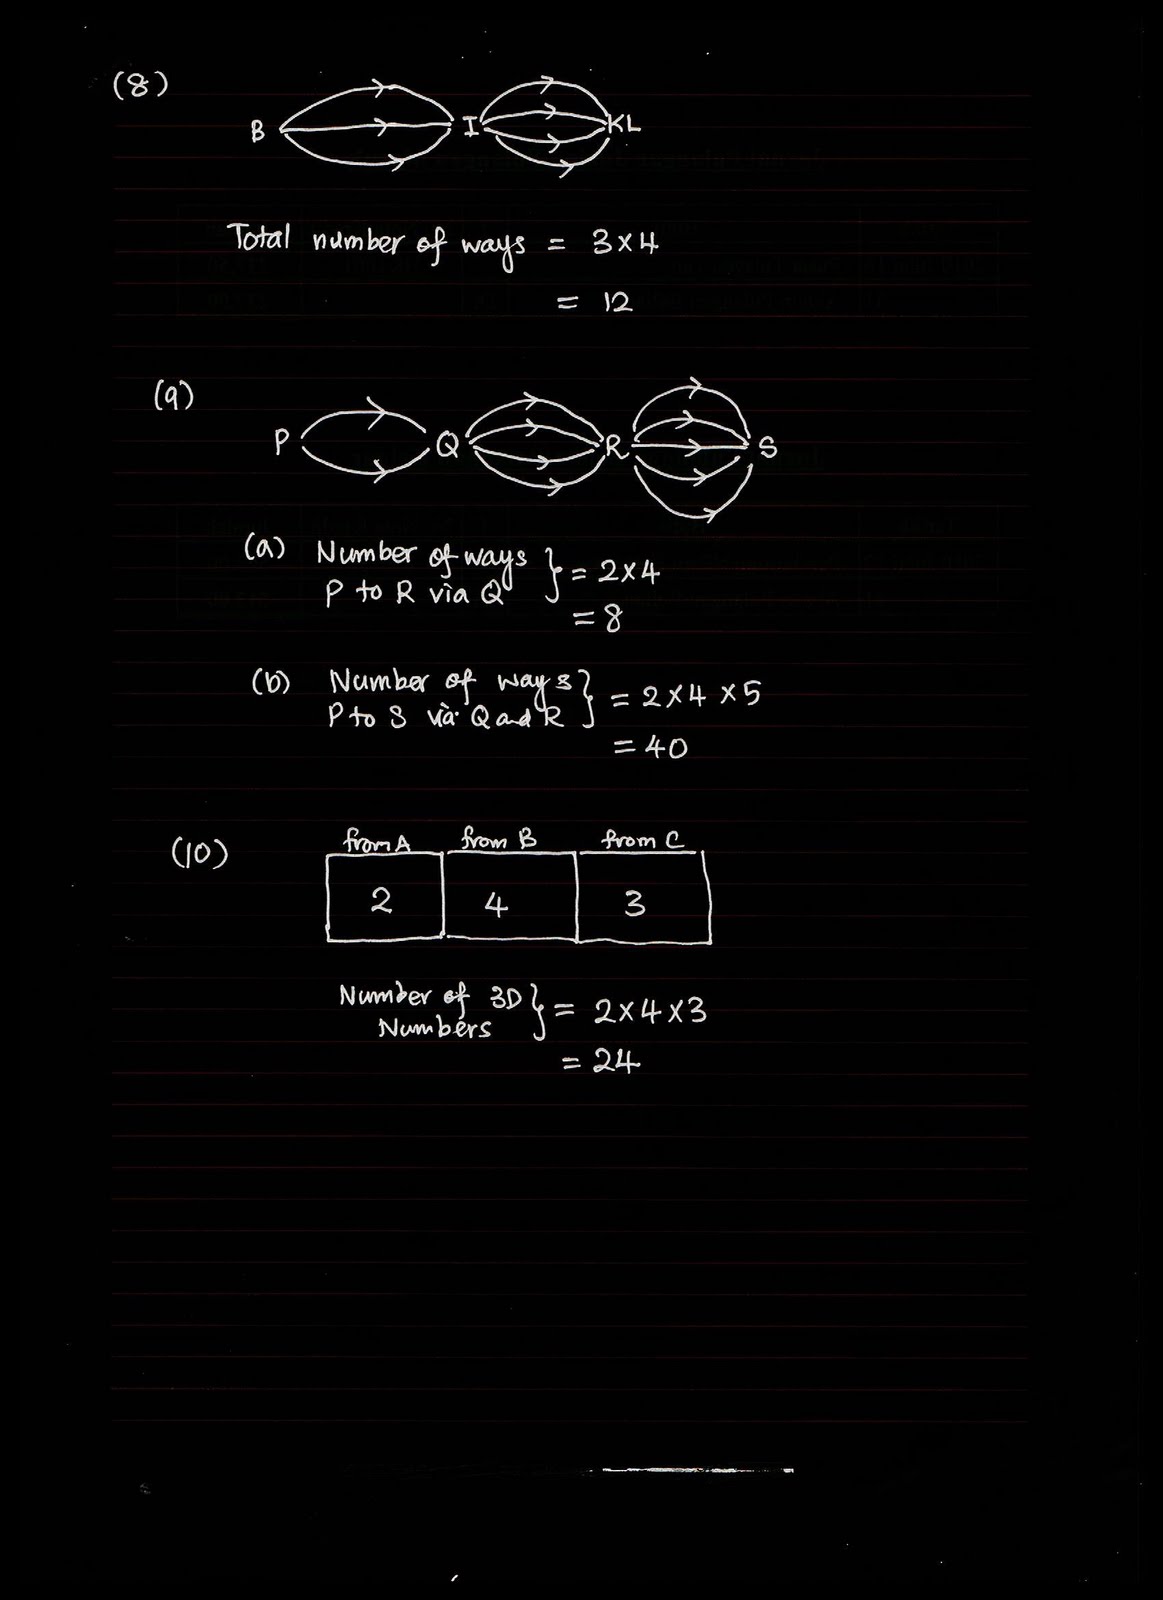 (8)
B I KL
Total number of ways = 3 x 4
= 12
(9)
P Q R S
(a) Number of ways } = 2x4
P to R via Q
= 8
(b) Number of ways } = 2 x 4 x 5
P to S via Q and R
= 40
(10)
from A from B from C
2 4 3
Number of 3D } = 2x4x3
Numbers
= 24